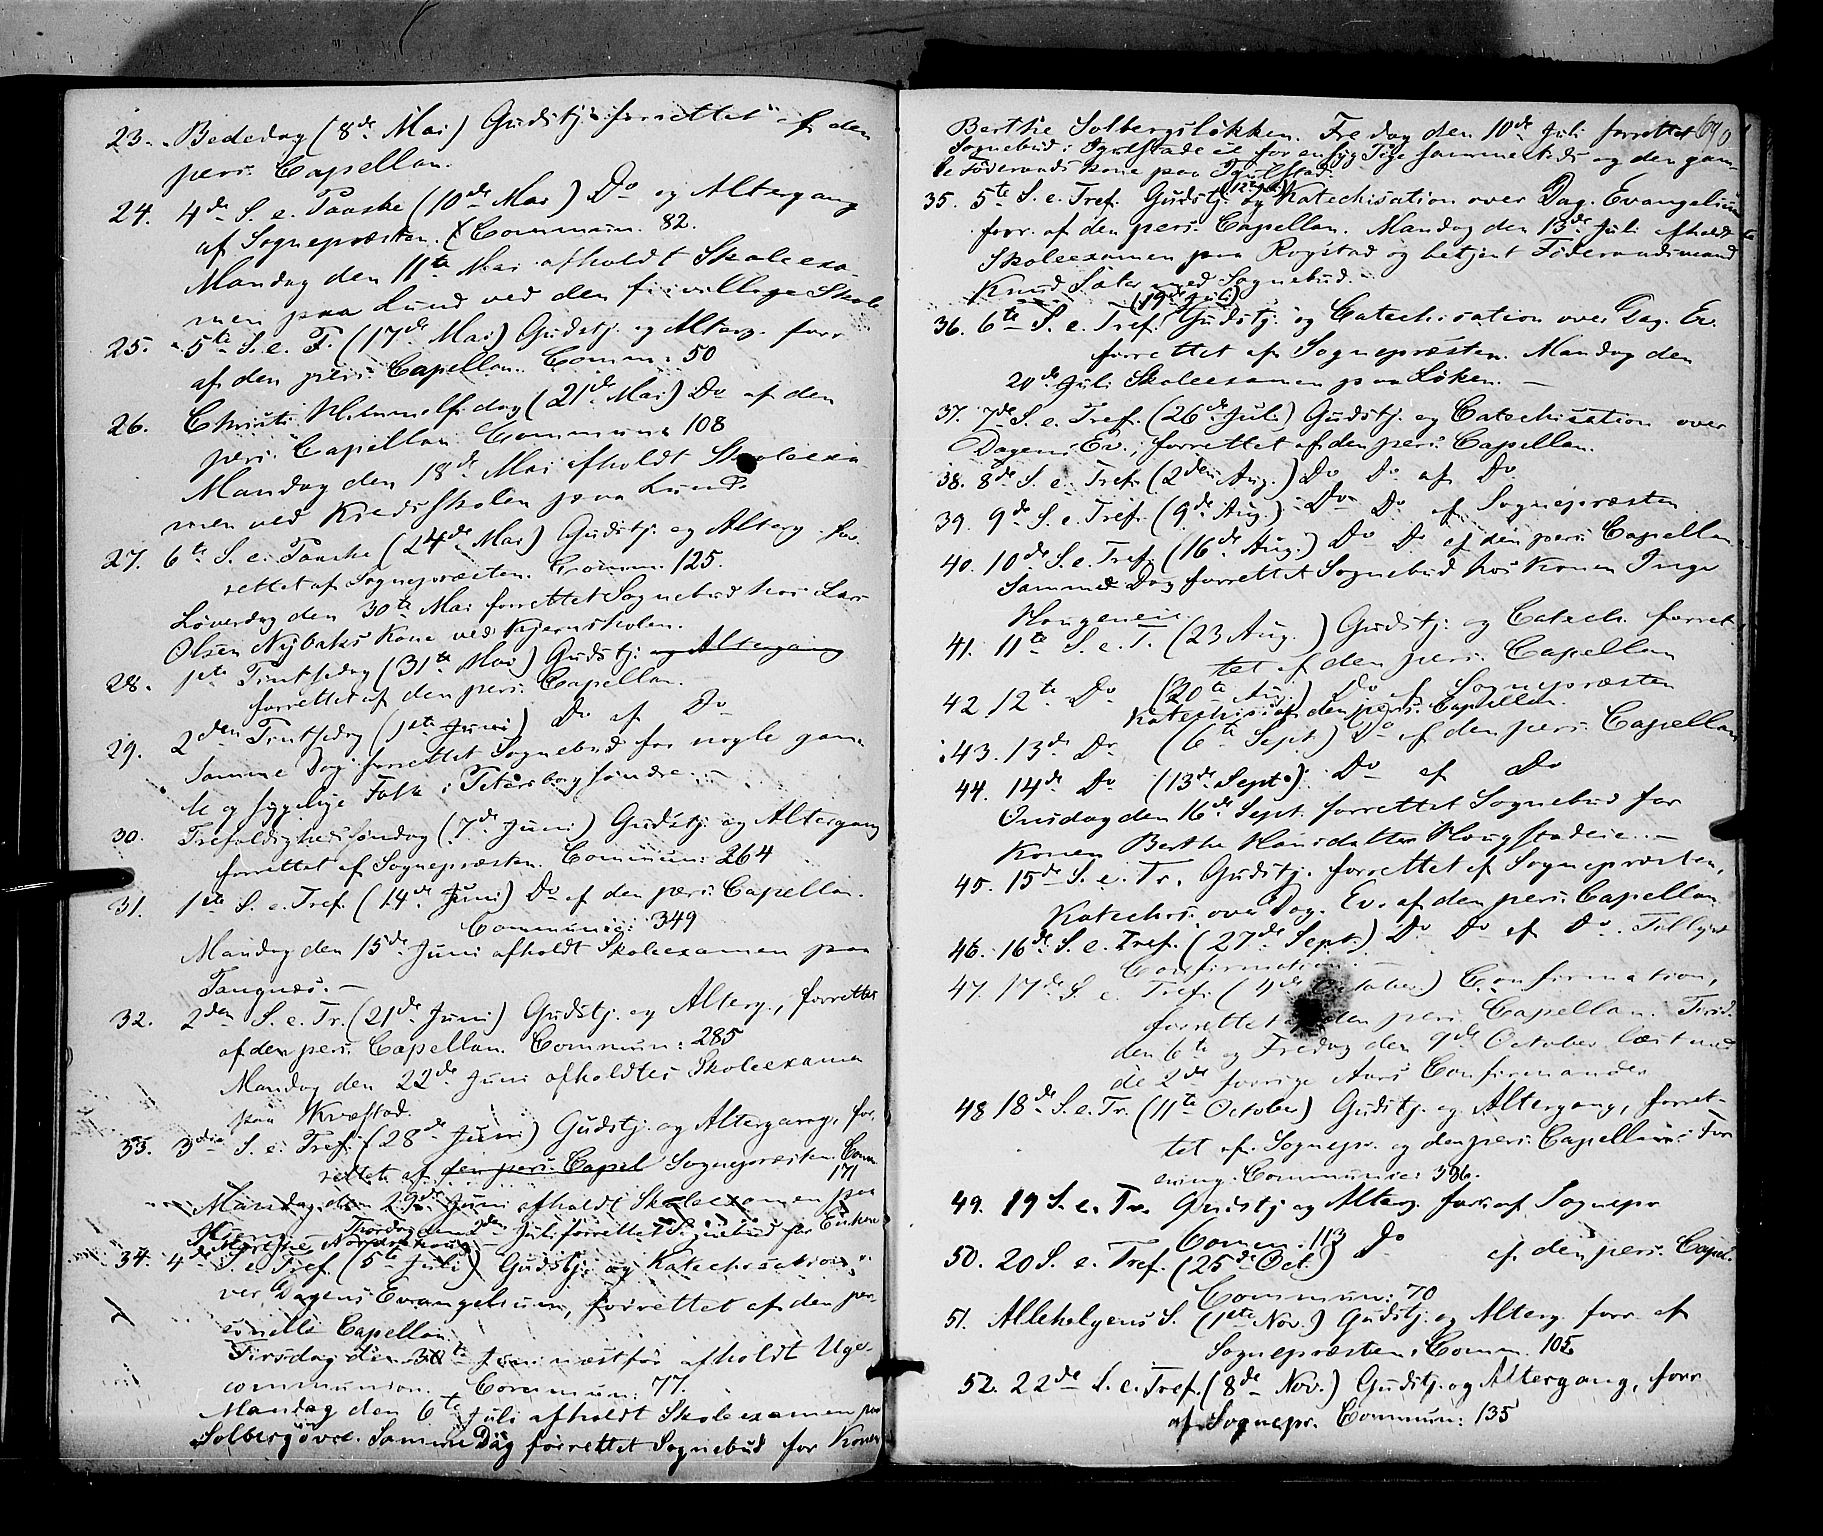 23. Bededag (8de Mai) Gudstj. forrettet af den
pers. Capellan.
24. 4de S. e. Paaske (10de Mai) Do og Altergang
af Sognepræsten. Commun. 82.
Mandag den 11te Mai afholdt Skoleexa-
men paa Lund ved den frivillige Skole
25. 5te S. e. P. (17de Mai) Gudstj. og Alterg. forr.
af den pers. Capellan. Comm: 50
26. Christi Himmelf.dag (21de Mai) Do af den
pers. Capellan Commun: 108
Mandag den 18de Mai afholdt Skoleexa-
men ved Kredsskolen paa Lund.
27. 6te S. e. Paaske (24de Mai) Gudstj. og Alterg. for-
rettet af Sognepræsten. Comm. 125.
Løverdag den 30te Mai forrettet Sognebud hos Lars
Olsen Nybaks Kone ved Kjernskolen.
28. 1ste Pintsedag (31te Mai) Gudstj. og Altergang
forrettet af den pers. Capellan.
29. 2den Pintsedag (1ste Juni) Do af Do
Samme Dag forrettet Sognebud for nogle gam-
le og sygelige Folk i Petersborg søndre. -
30. Trefoldighedssøndag (7de Juni) Gudstj. og Altergang
forrettet af Sognepræsten. Commun: 264
31. 1ste S. e. Tref. (14de Juni) Do af den pers. Capellan.
Communic: 349
Mandag den 15de Juni afholdt Skoleexamen paa
Tangnæs. -
32. 2den S. e. Tr. (21de Juni) Gudstj. og Alterg., forrettet
af den pers. Capellan. Commun: 285
Mandag den 22de Juni afholdtes Skoleexamen
paa Kvæstad.
33. 3die S. e. Tref. (28de Juni) Gudstj. og Altergang, for-
rettet af den pers. Capel Sognepræsten. Comm.
171
Mandag den 29de Juni afholdt Skoleexamen paa
Torsdag den 2den Juli forrettet Sognebud for Enken
34. 4de S. e. Tref. (5te Juli) Gudstj. og Katechisation o-
ver Dagens Evangelium, forrettet af den per-
sonelle Capellan.
Tirsdag den 30te Juni næstfør afholdt Uge-
communion. Commun: 77.
Mandag den 6te Juli afholdt Skoleexamen paa
Solberg øvre. Samme Dag forrettet Sognebud for Konen
690
Berthe Solbergsløkken. Fredag den 10de Juli forrettet
Sognebud i for en syg Pige sammesteds og den gam-
le Føderaads Kone paa
35. 5te S. e. Tref. (12 Juli) Gudstj. og Katechisation over Dag. Evangelium
forr. af den pers. Capellan. Mandag den 13de Juli afholdt
Skoleexamen paa Rogstad og betjent Føderaadsmand
Knud Sater med Sognebud. -
36. 6te S. e. Tref. (19de Juli) Gudstj. og Catechisation over Dag. Ev.
forrettet af Sognepræsten. Mandag den
20de Juli Skoleexamen paa Løken. -
37. 7de S. e. Tref. (26de Juli) Gudstj. og Catechisation over
Dagens Ev., forrettet af den pers. Capellan.
38. 8de S. e. Tref. (2den Aug.) Do Do af Do
39. 9de S. e. Tref. (9de Aug.) Do Do af Sognepræsten
40. 10de S. e. Tref. (16de Aug.) Do Do af den pers. Capellan.
Samme Dag forrettet Sognebud hos Konen Inge
Haugeneie.
41. 11te S. e. T. (23 Aug.) Gudstj. og Catech. forret-
tet af den pers. Capellan
42. 12te Do (30te Aug.) Do af Sognepræsten
Katechis. af den pers. Capellan.
43. 13de Do (6te Sept.) Do af den pers. Capellan
44. 14de Do (13de Sept.) Do af Do
Onsdag den 16de Sept. forrettet Sognebud for
Konen Berthe Hansdatter Haugstadeie. -
45. 15de S. e. Tr. Gudstj. forrettet af Sognepræsten,
Katechis. over Dag. Ev. af den pers. Capellan.
46. 16de S. e. Tref. (27de Sept.) Do Do af Do. Tillyst
Confirmation. -
47. 17de S. e. Tref. (4de October) Confirmation,
forrettet af den pers. Capellan. Tirsd.
den 6te og Fredag den 9de October læst med
de 2de forrige Aars Confirmander
48. 18de S. e. Tr. (11te October) Gudstj. og Altergang, forret-
tet af Sognepr. og den pers. Capellan i For-
ening. Communic: 386.
49. 19 S. e. Tr. Gudstj. og Alterg. forr. af Sognepr
Comm: 113
50. 20 S. e. Tref. (25de Oct.) Do af den pers. Capel.
Commun: 70
51. Allehelgens S. (1ste Nov.) Gudstj. og Alterg. forr. af
Sognepræsten, Comm. 105
52. 22de S. e. Tref. (8de Nov.) Gudstj. og Altergang, forr.
af Sognepr. Commun: 135